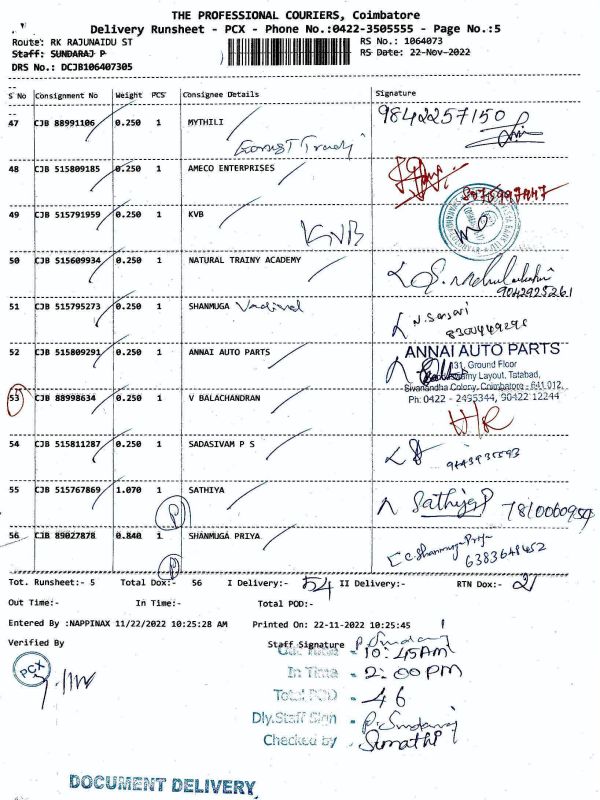 THE PROFESSIONAL COURIERS, Coimbatore
Delivery Runsheet - PCX - Phone No.:0422-3505555 - Page No.:5
Route: RK RAJUNAIDU ST RS No.: 1064073
Staff: SUNDARAJ P RS Date: 22-Nov-2022
DRS No.: DCJB106407305
S No Consignment No Weight PCS Consignee Details Signature
47 CJB 88991106 0.250 1 MYTHILI 9842257150
48 CJB 515809185 0.250 1 AMECO ENTERPRISES
49 CJB 515791959 0.250 1 KVB
KVB
50 CJB 515609934 0.250 1 NATURAL TRAINY ACADEMY
9042925261
51 CJB 515795273 0.250 1 SHANMUGA Vadivel
52 CJB 515809291 0.250 1 ANNAI AUTO PARTS ANNAI AUTO PARTS
131, Ground Floor
Layout, Tatabad,
Sivanandha Colony, Coimbatore - 641 012.
Ph: 0422 - 2495344, 90422 12244
53 CJB 88998634 0.250 1 V BALACHANDRAN
54 CJB 515811287 0.250 1 SADASIVAM P S
55 CJB 515767869 1.070 1 SATHIYA
P
56 CJB 89027878 0.840 1 SHANMUGA PRIYA
6383648452
P
Tot. Runsheet:- 5 Total Dox:- 56 I Delivery:- 54 II Delivery:- RTN Dox:- 2
Out Time:- In Time:- Total POD:-
Entered By :NAPPINAX 11/22/2022 10:25:28 AM Printed On: 22-11-2022 10:25:45 1
Verified By Staff Signature P. Sundaraj
PCX
Out Time - 10:45AM
In Time - 2:00PM
Total POD - 46
Dly.Staff Sign - P. Sundaraj
Checked by - Sumathi
DOCUMENT DELIVERY